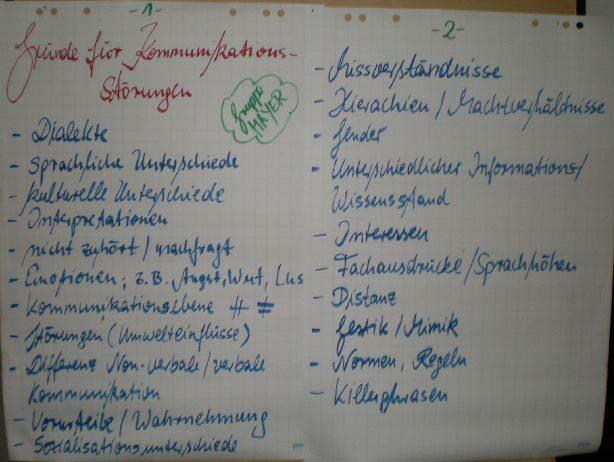 -1-
Gründe für Kommunikations-
Störungen
Gruppe
MAYER
- Dialekte
- Sprachliche Unterschiede
- kulturelle Unterschiede
- Interpretationen
- nicht zuhört / nachfragt
- Emotionen, z.B. Angst, Wut, Lus
- Kommunikationsebene # ≠
- Störungen (Umwelteinflüsse)
- Differenz Non-verbale/verbale
Kommunikation
- Vorurteile / Wahrnehmung
- Sozialisationsunterschiede
-2-
- Missverständnisse
- Hierachien / Machtverhältnisse
- Gender
- Unterschiedlicher Informations/
Wissensstand
- Interessen
- Fachausdrücke/Sprachhöhen
- Distanz
- Gestik / Mimik
- Normen, Regeln
- Killerphrasen